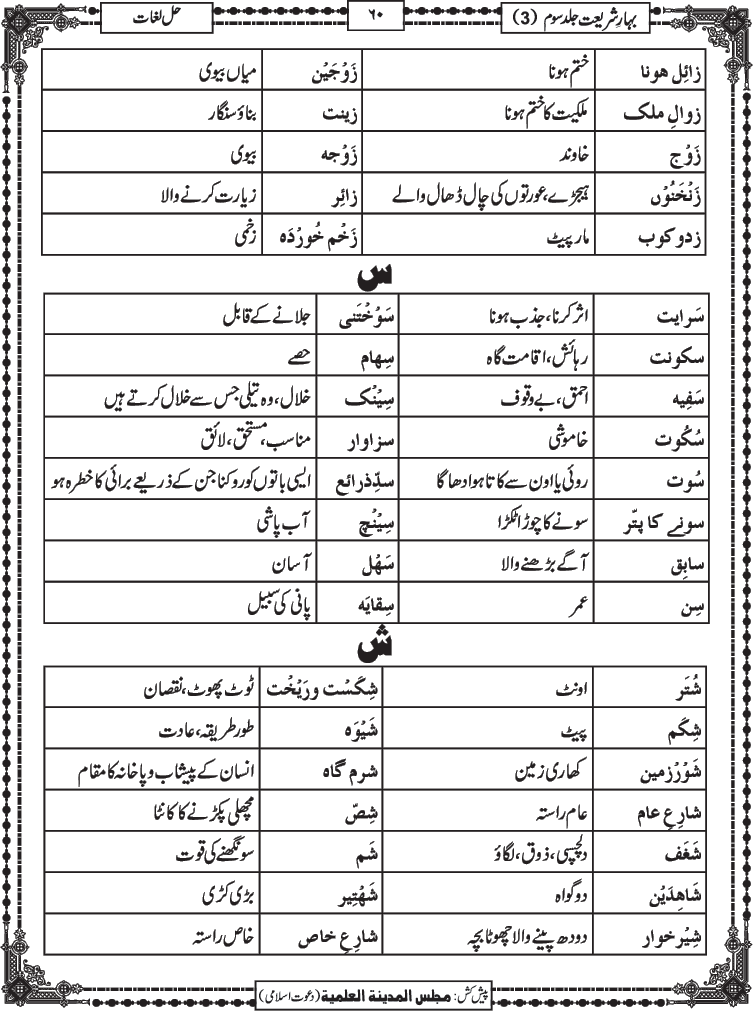 بہارِ شریعت جلد سوم (3) ۶۰ حل لغات
زائِل ہونا ختم ہونا زَوْجَیْن میاں بیوی
زوالِ ملک ملکیت کا ختم ہونا زینت بناؤ سنگار
زَوْج خاوند زَوْجہ بیوی
زَنْخَنُوْں ہیجڑے، عورتوں کی چال ڈھال والے زائِر زیارت کرنے والا
زدو کوب مار پیٹ زَخْم خُورْدَہ زخمی
س
سَرایت اثر کرنا، جذب ہونا سَوْخْتَنی جلانے کے قابل
سکونت رہائش، اقامت گاہ سِہام حصے
سَفِیہ احمق، بے وقوف سِیْنْک خلال، وہ تیلی جس سے خلال کرتے ہیں
سُکُوت خاموشی سزاوار مناسب، مستحق، لائق
سُوت روئی یا اون سے کاتا ہوا دھاگا سدِّ ذرائع ایسی باتوں کو روکنا جن کے ذریعے برائی کا خطرہ ہو
سونے کا پتّر سونے کا چوڑا ٹکڑا سِیْنْچ آب پاشی
سابِق آگے بڑھنے والا سَہْل آسان
سِن عمر سِقایَہ پانی کی سبیل
ش
شُتَر اونٹ شِکَسْت و رِیْخْت ٹوٹ پھوٹ، نقصان
شِکَم پیٹ شَیْوَہ طور طریقہ، عادت
شَوْرْ زمین کھاری زمین شرم گاہ انسان کے پیشاب و پاخانہ کا مقام
شارِعِ عام عام راستہ شِصّ مچھلی پکڑنے کا کانٹا
شَغَف دلچسپی، ذوق، لگاؤ شَم سونگھنے کی قوت
شاھِدَیْن دو گواہ شَہْتِیر بڑی کڑی
شِیْر خوار دودھ پینے والا چھوٹا بچہ شارِعِ خاص خاص راستہ
پیش کش: مجلس المدینۃ العلمیۃ (دعوت اسلامی)